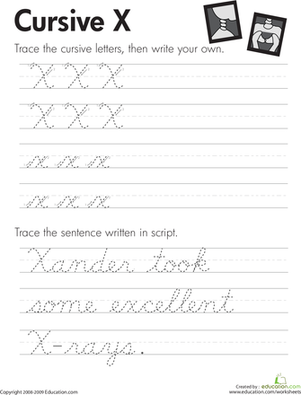 Cursive X
Trace the cursive letters, then write your own.
X X X
X X X
x x x
x x x
Trace the sentence written in script.
Xander took
some excellent
X-rays.
Created by:
education.com
Copyright 2008-2009 Education.com
www.education.com/worksheets